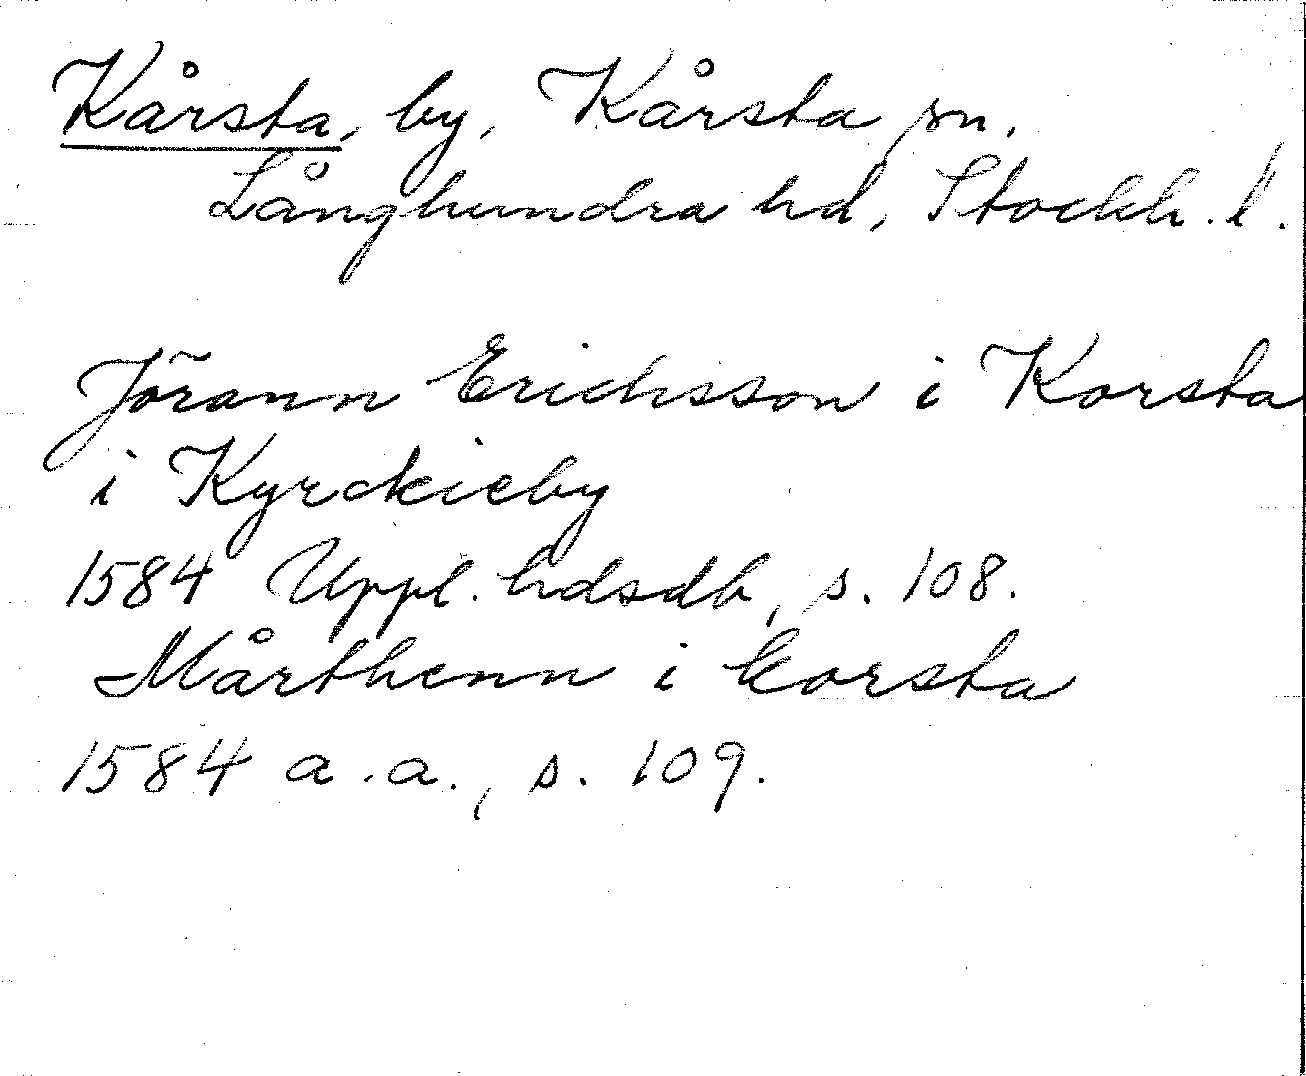 Kårsta, by, Kårsta sn.
Långhundra hd, Stockh. l.
Jörann Erichsson i Korsta
i Kyrckieby
1584 Uppl. hdsdb, s. 108.
Mårthenn i korsta
1584 a.a., s. 109.